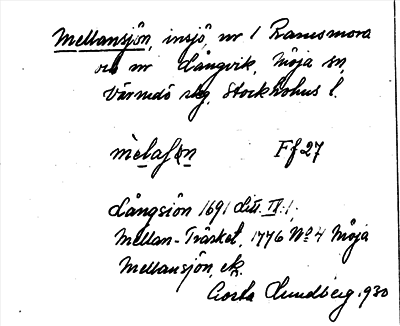 Mellansjön, insjö, nr 1 Ramsmora
och nr Långvik, Möja sn,
Värmdö skg, Stockholms l.
mèlaſo̱n Ff 27
Långsiön 1691 Litt. IV:1,
Mellan-Träsket, 1776 No 4 Möja
Mellansjön, ek.
Gösta Lundberg 1930